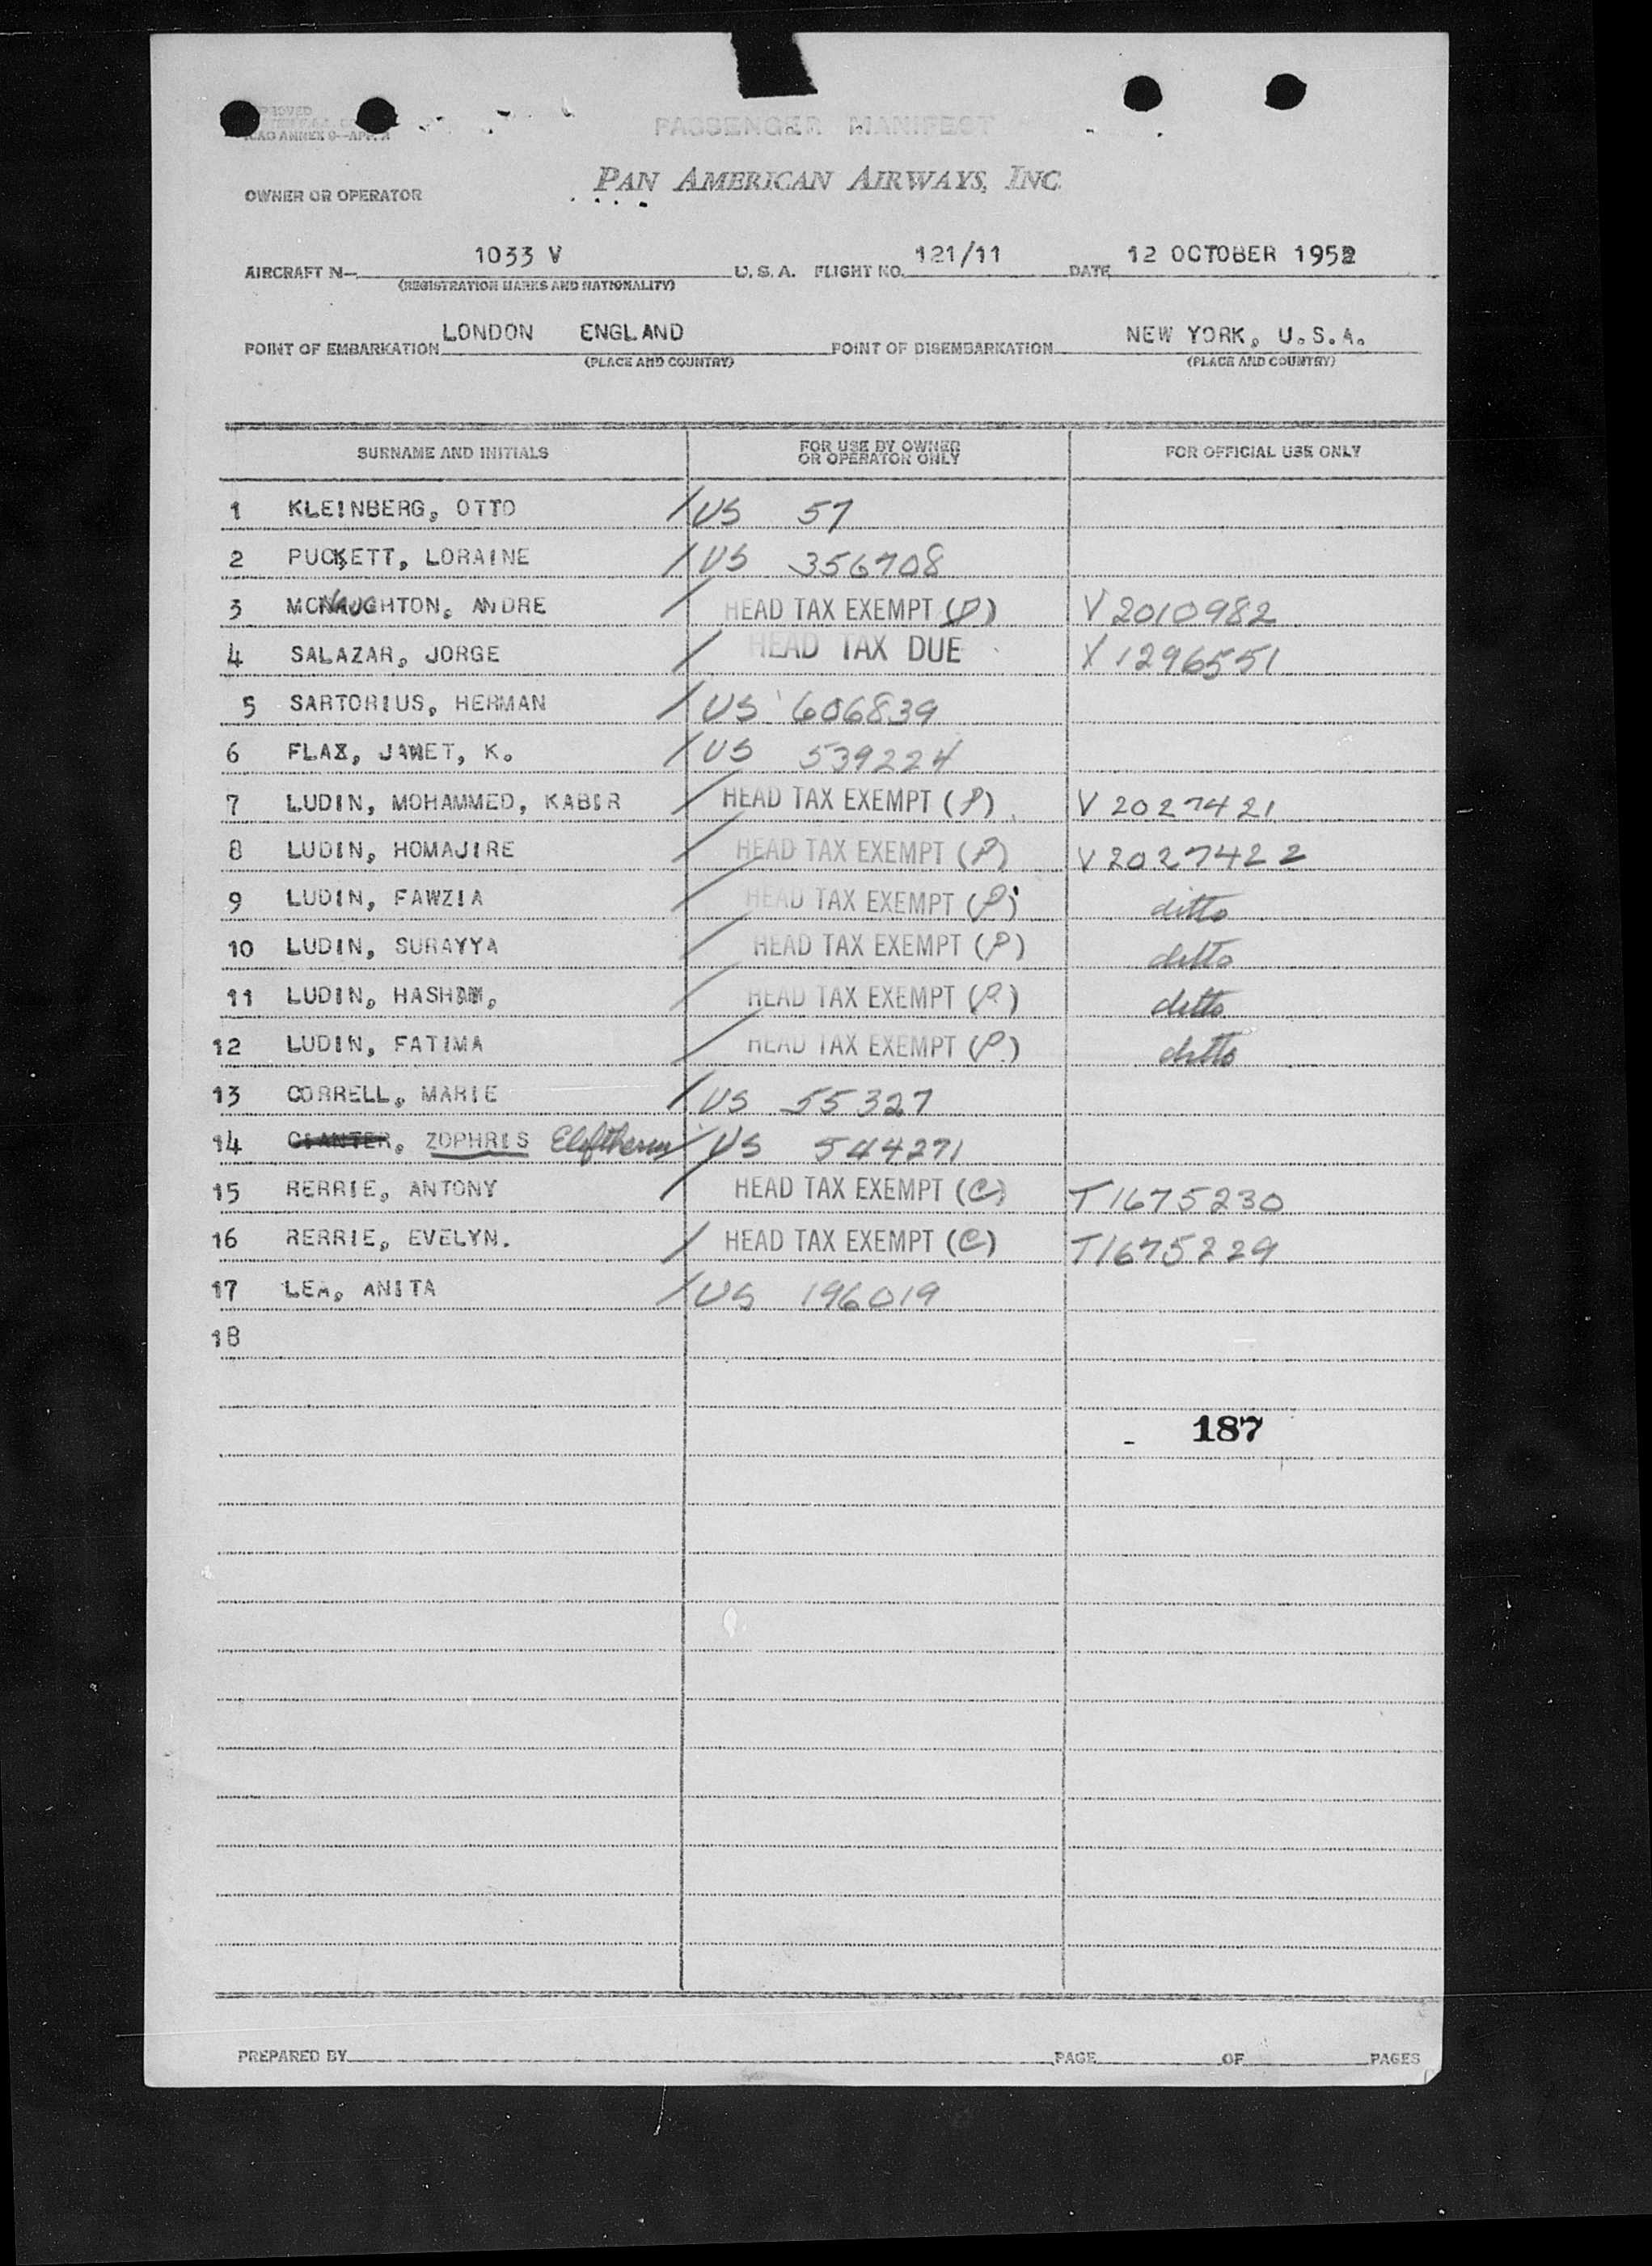 ICAO ANNEX 9—APP. A
PASSENGER MANIFEST
PAN AMERICAN AIRWAYS, INC.
OWNER OR OPERATOR
AIRCRAFT N— 1033 V U. S. A. FLIGHT NO. 121/11 DATE 12 OCTOBER 1952
(REGISTRATION MARKS AND NATIONALITY)
POINT OF EMBARKATION LONDON ENGLAND POINT OF DISEMBARKATION NEW YORK, U.S.A.
(PLACE AND COUNTRY) (PLACE AND COUNTRY)
SURNAME AND INITIALS FOR USE BY OWNER OR OPERATOR ONLY FOR OFFICIAL USE ONLY
1 KLEINBERG, OTTO / US 57
2 PUCKETT, LORAINE / US 356708
3 MCNAUGHTON, ANDRE / HEAD TAX EXEMPT (P) V 2010982
4 SALAZAR, JORGE / HEAD TAX DUE V 1296551
5 SARTORIUS, HERMAN / US 606839
6 FLAX, JANET, K. / US 539224
7 LUDIN, MOHAMMED, KABIR / HEAD TAX EXEMPT (P) V 2027421
8 LUDIN, HOMAJIRE / HEAD TAX EXEMPT (P) V 2027422
9 LUDIN, FAWZIA / HEAD TAX EXEMPT (P) ditto
10 LUDIN, SURAYYA / HEAD TAX EXEMPT (P) ditto
11 LUDIN, HASHIM, / HEAD TAX EXEMPT (P) ditto
12 LUDIN, FATIMA / HEAD TAX EXEMPT (P) ditto
13 CORRELL, MARIE / US 55327
14 , ZOPHRIS / US 544271
15 RERRIE, ANTONY / HEAD TAX EXEMPT (C) T1675230
16 RERRIE, EVELYN. / HEAD TAX EXEMPT (C) T1675229
17 LEA, ANITA / US 196019
18
187
PREPARED BY PAGE OF PAGES